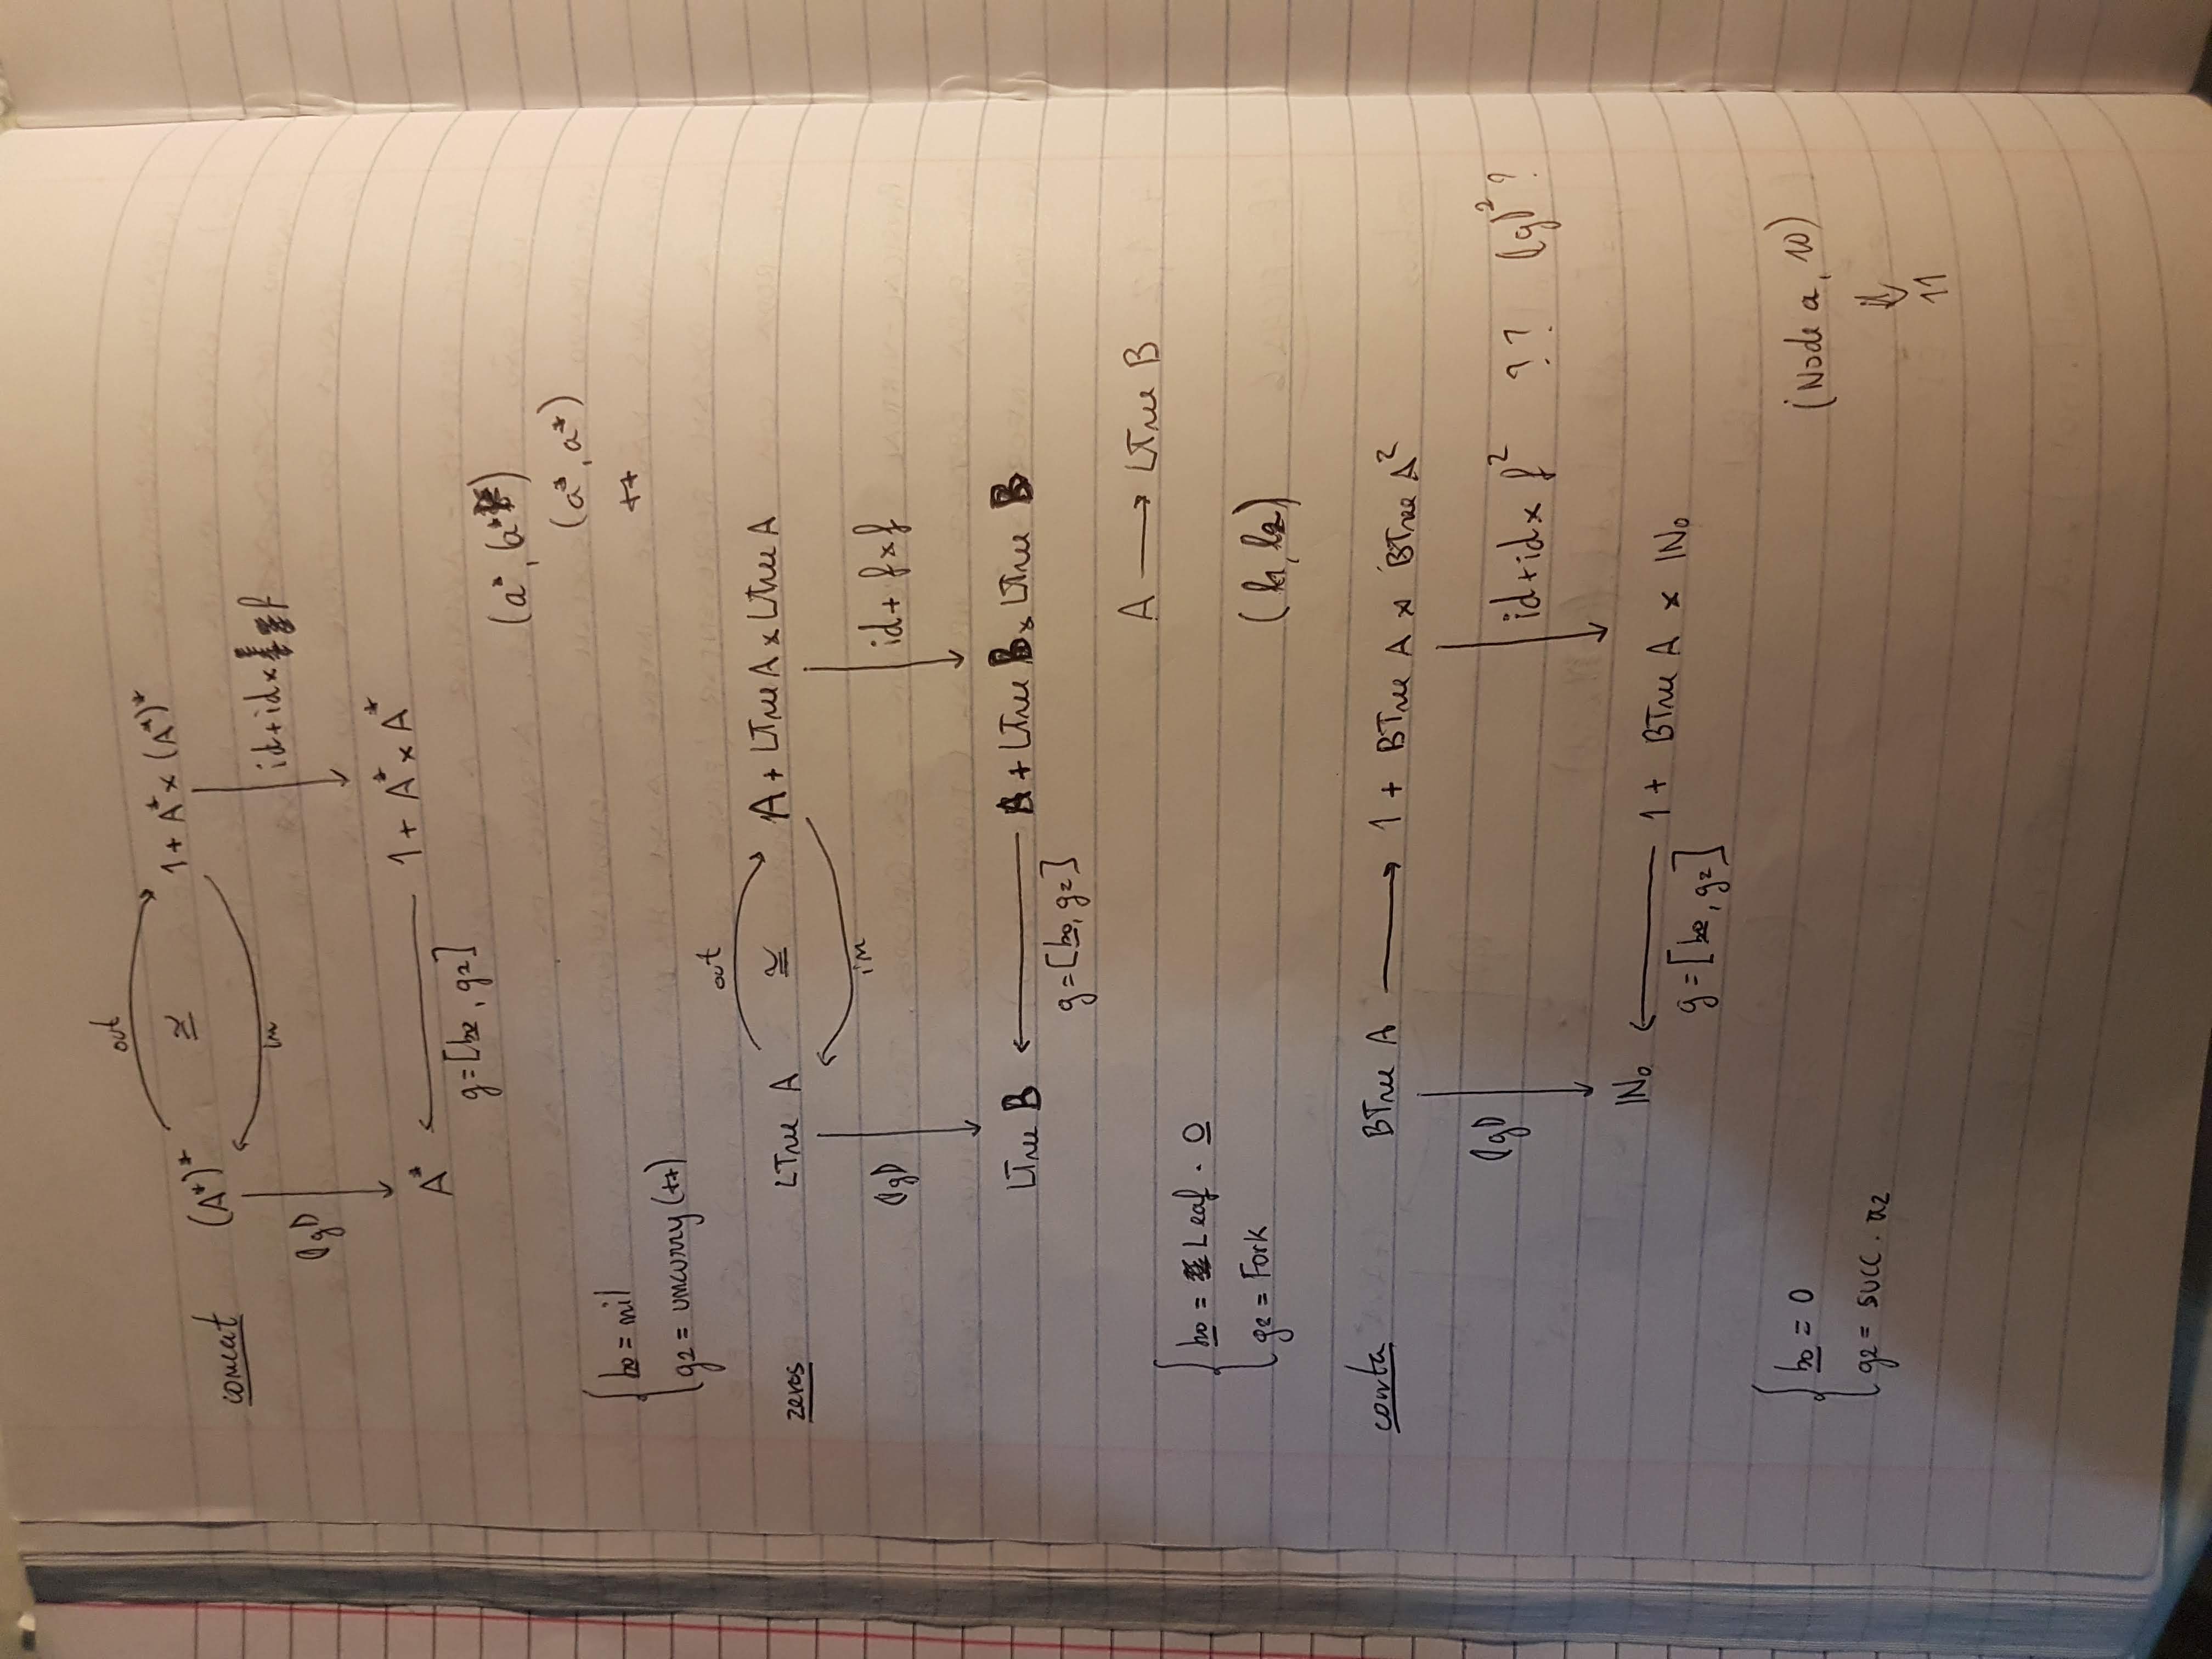 out
concat (A*)* ≅ 1 + A* × (A*)*
in
⦇g⦈ id + id × f
A* 1 + A* × A*
g = [b0, g2]
(a*, (a*
(a*, a*)
++
b0 = nil
g2 = uncurry (++)
out
zeros LTree A ≅ A + LTree A × LTree A
in
⦇g⦈ id + f × f
LTree B A + LTree B × LTree B
g = [b0, g2]
A → LTree B
b0 = Leaf . 0
g2 = Fork
(l1, l2)
conta BTree A → 1 + BTree A × BTree A²
⦇g⦈ id + id × f² ?? ⦇g⦈² ?
ℕ₀ ← 1 + BTree A × ℕ₀
g = [b0, g2]
b0 = 0
g2 = succ . π2
(Node a, 10)
⇓
11